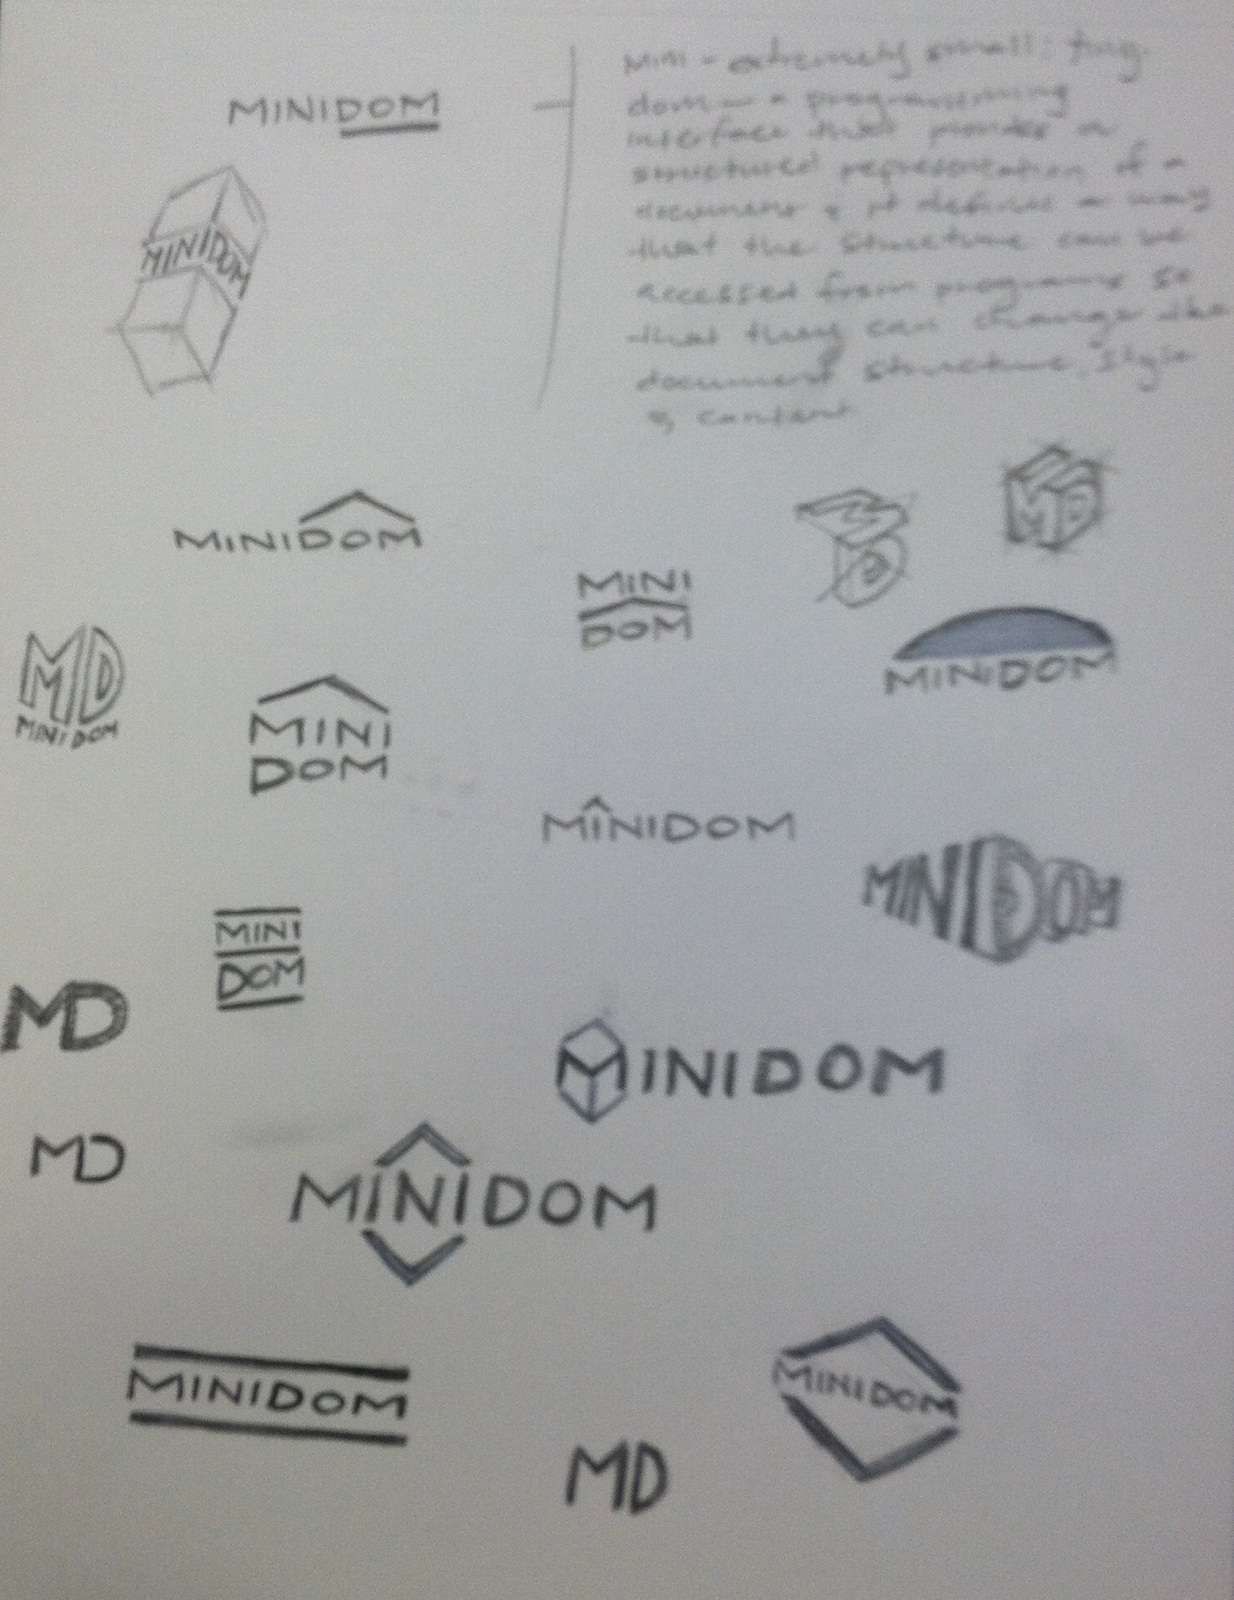 MINIDOM
Mini - extremely small; tiny
dom - a programming
interface that provides a
structured representation of a
document & it defines a way
that the structure can be
accessed from programs so
that they can change the
document structure, style
& content
MINIDOM
MINIDOM
MINI
DOM
M
D
MD
MINIDOM
MD
MINIDOM
MINI
DOM
MINIDOM
MINIDOM
MINI
DOM
MD
MINIDOM
MD
MINIDOM
MINIDOM
MINIDOM
MD